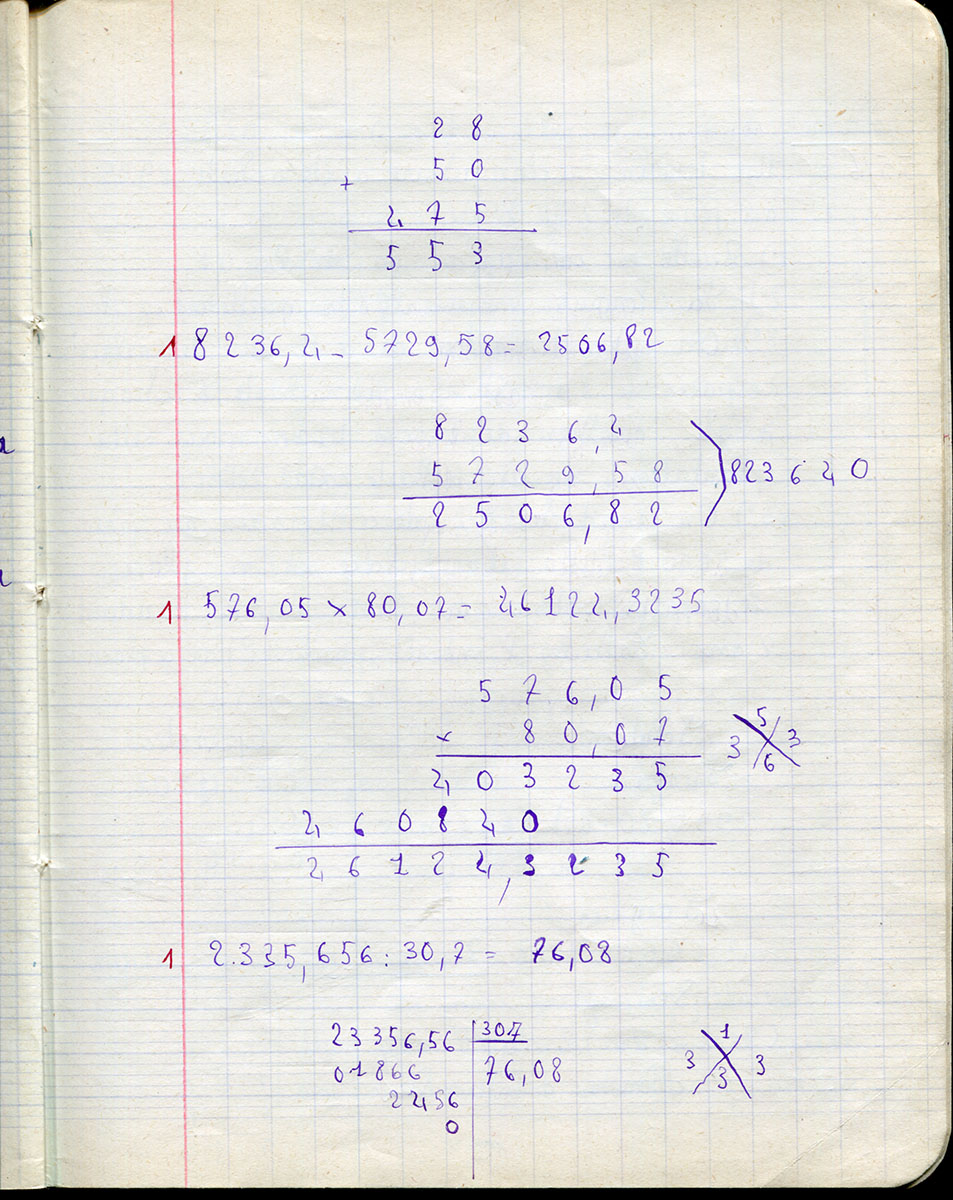 28
50
+
475
553
1 8236,4 - 5729,58 = 2506,82
8236,4
5729,58 ) 823640
2506,82
1 576,05 × 80,07 = 46124,3235
576,05
× 80,07
5
3 3
6
403235
460840
46124,3235
1 2.335,656 : 30,7 = 76,08
23356,56 307
01866 76,08
2456
0
1
3 3
3